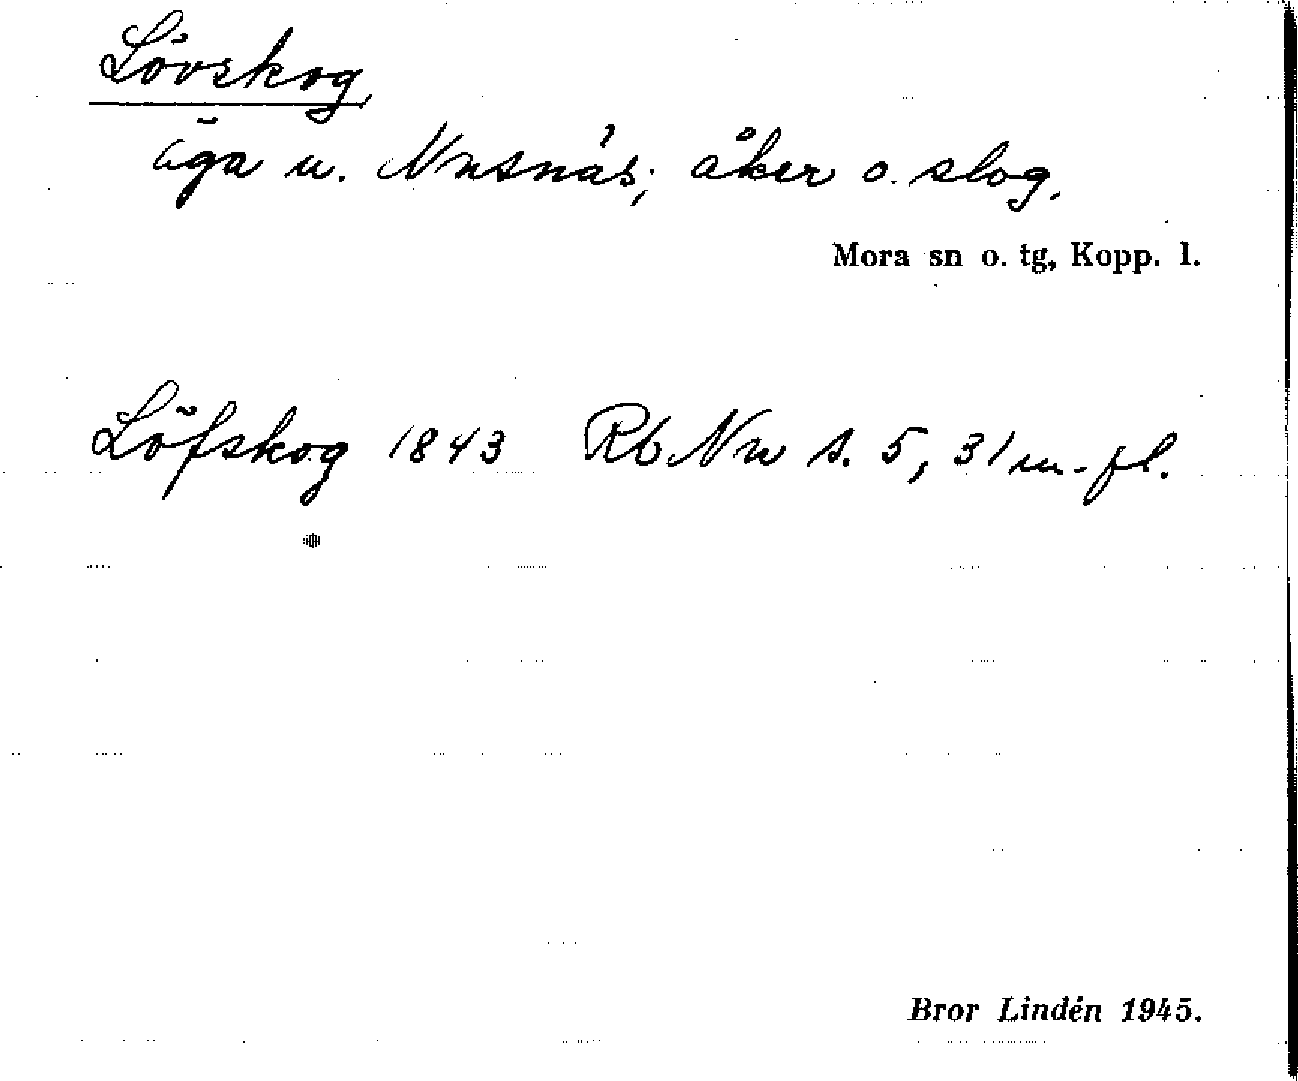 Lövskog,
äga u. Nusnäs; åker o. slog.
Mora sn o. tg, Kopp. l.
Löfskog 1843 Rb Nu s. 5, 31 m. fl.
Bror Lindén 1945.